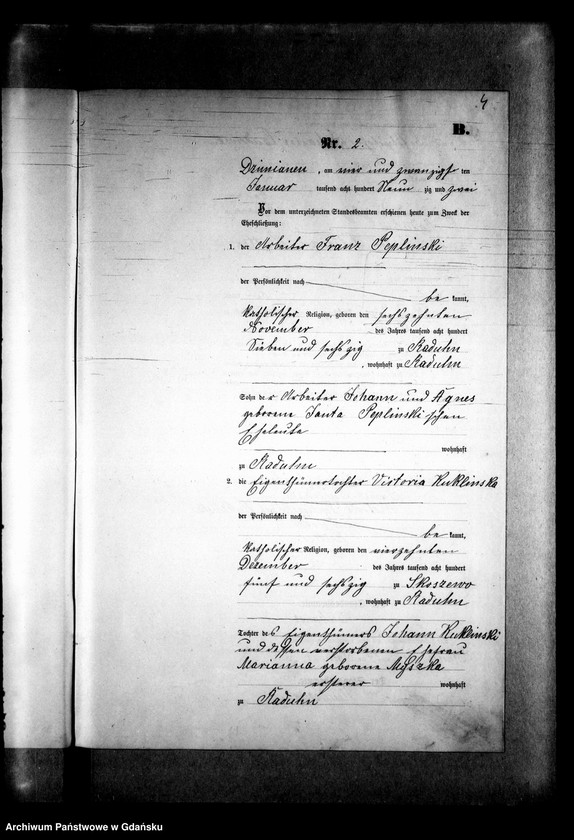 4
B.
Nr. 2.
Dzimianen, am vier und zwanzigsten
Januar tausend acht hundert Neun zig und zwei
Vor dem unterzeichneten Standesbeamten erschienen heute zum Zweck der
Eheschließung:
1. der Arbeiter Franz Peplinski
der Persönlichkeit nach
be kannt,
katholischer Religion, geboren den sechszehnten
November des Jahres tausend acht hundert
Sieben und sechszig zu Raduhn
, wohnhaft zu Raduhn
Sohn der Arbeiter Johann und Agnes
geborene Janta Peplinski'schen
Eheleute
wohnhaft
zu Raduhn
2. die Eigenthümertochter Victoria Kuklinska
der Persönlichkeit nach
be kannt,
katholischer Religion, geboren den vierzehnten
Dezember des Jahres tausend acht hundert
fünf und sechszig zu Skoszewo
, wohnhaft zu Raduhn
Tochter des Eigenthümers Johann Kuklinski
und dessen verstorbenen Ehefrau
Marianna geborene Myszka
ersterer wohnhaft
zu Raduhn
Archiwum Państwowe w Gdańsku